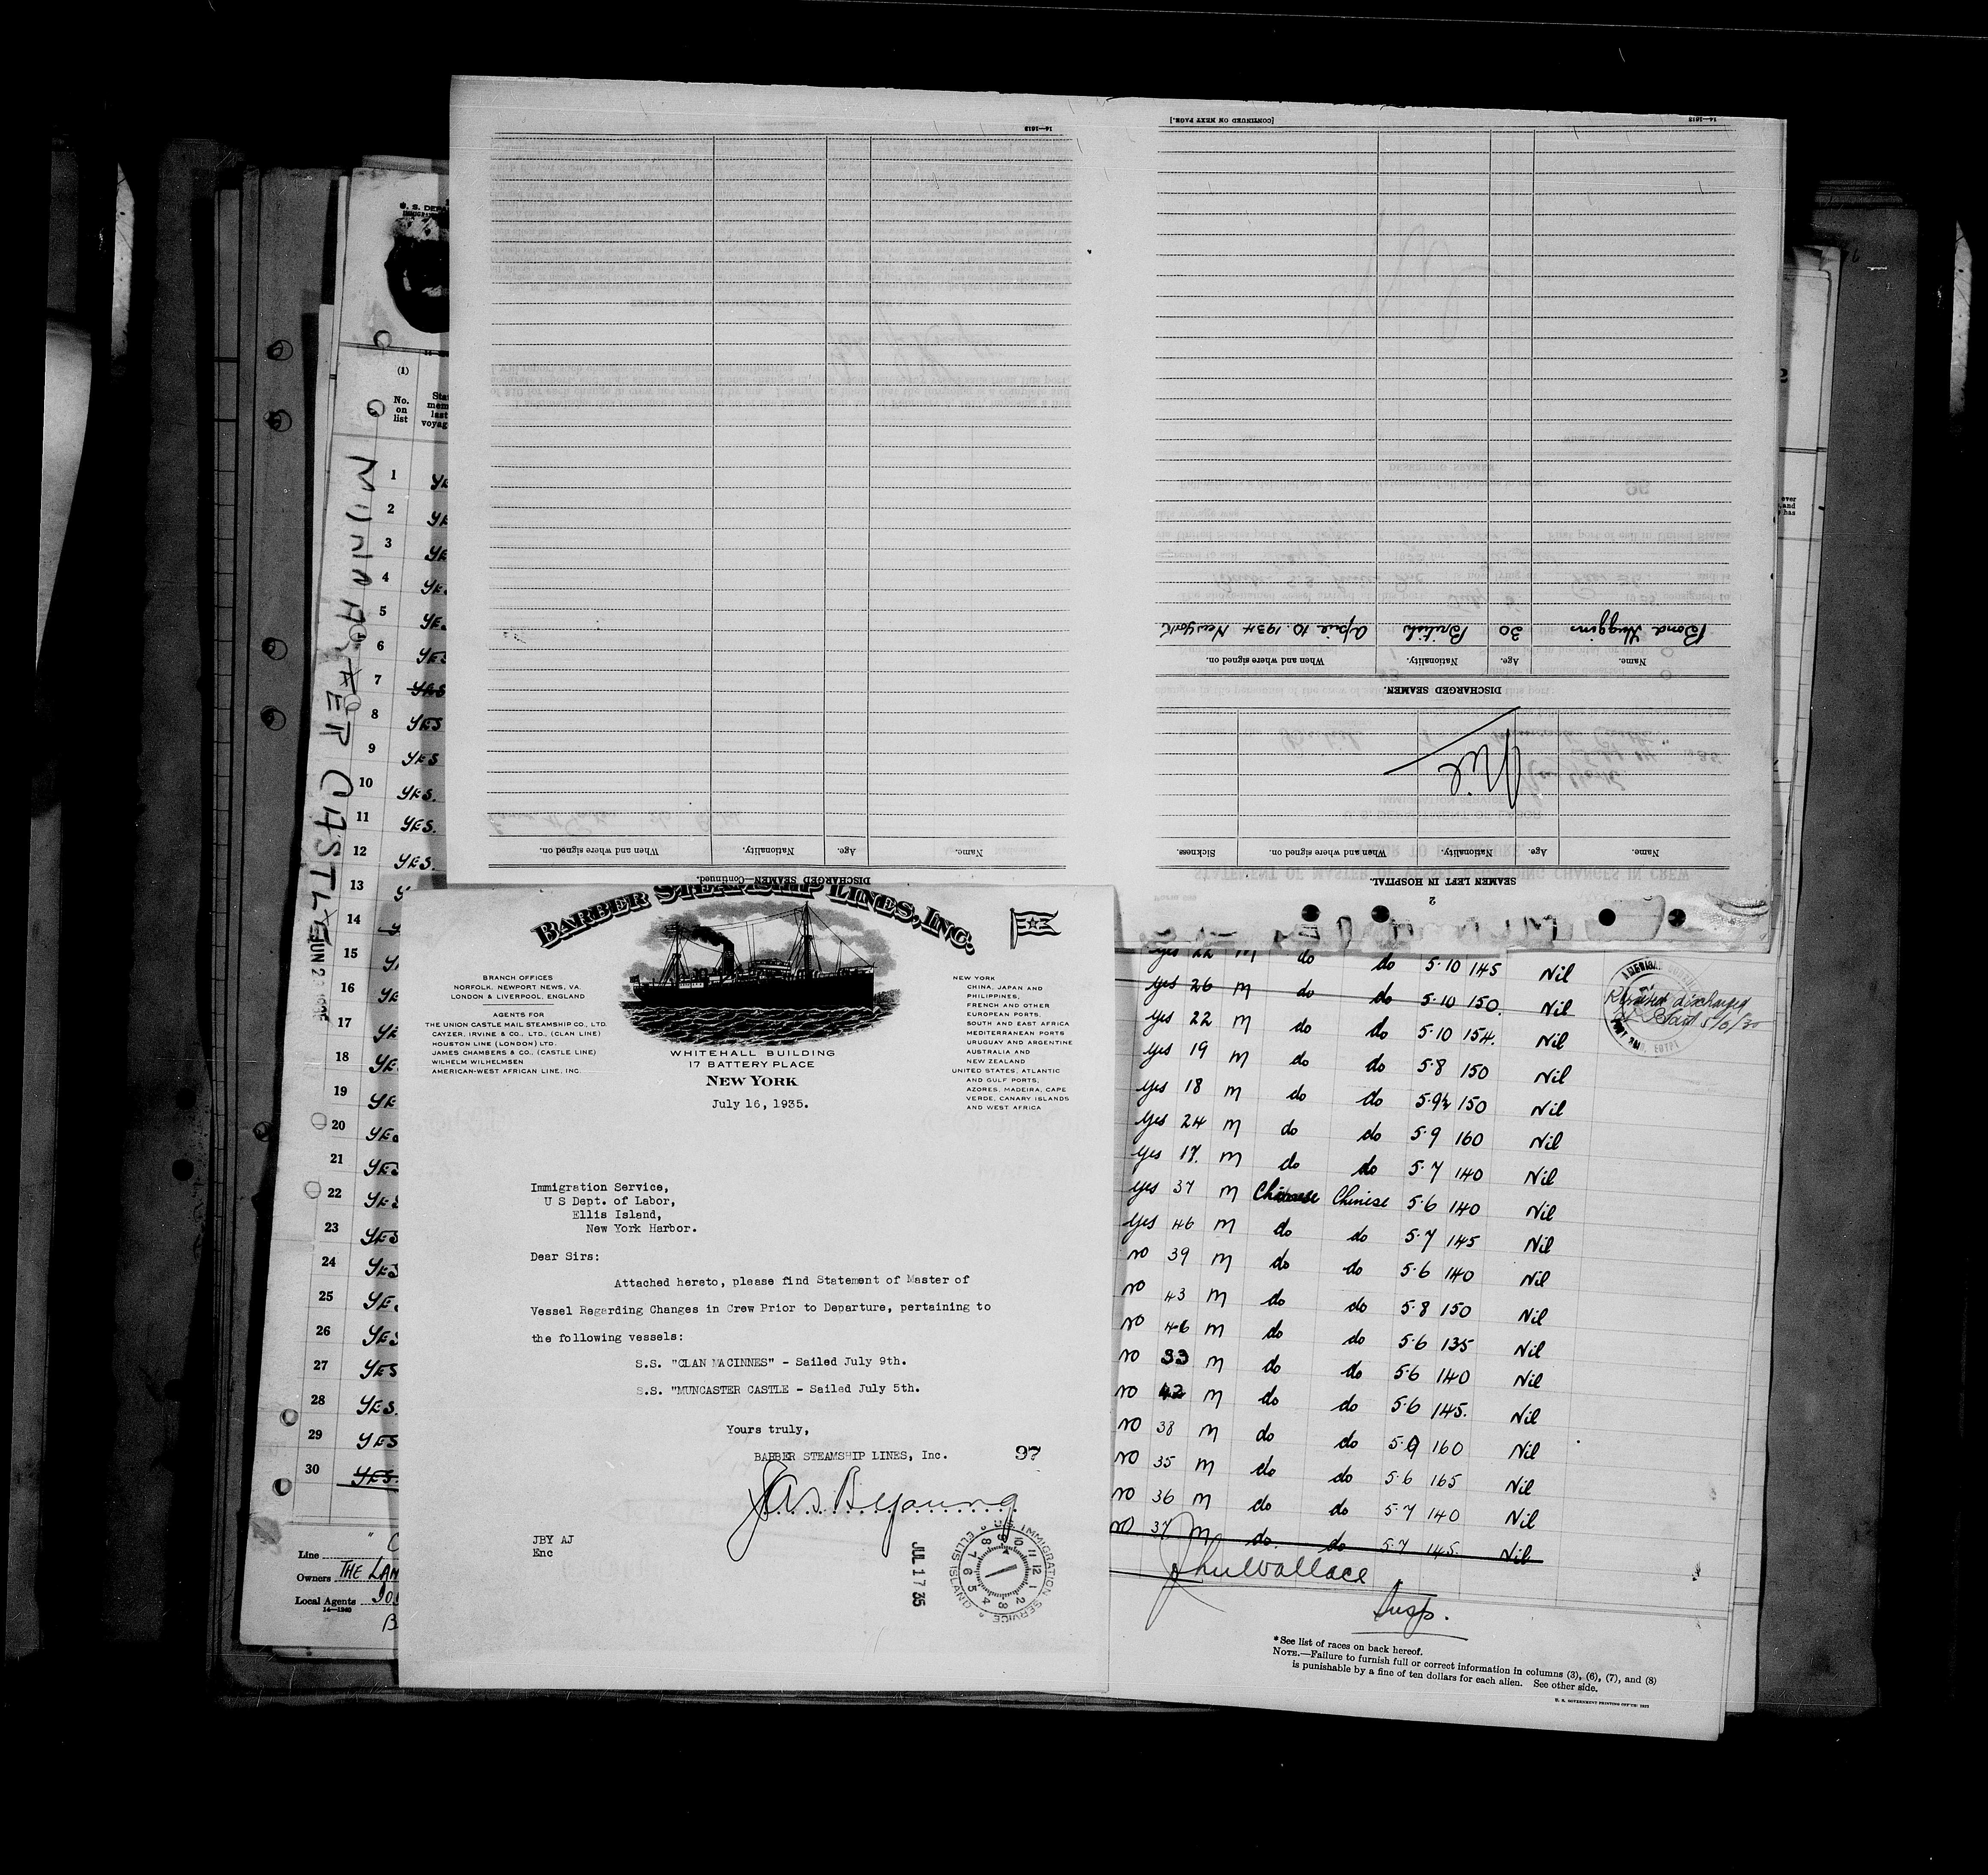 14—1613
[CONTINUED ON NEXT PAGE.]
14—1613
Bond Huggins 30 British April 10. 1934 New York
Name. Age. Nationality. When and where signed on.
DISCHARGED SEAMEN.
Nil
Name. Age. Nationality. When and where signed on. Sickness.
SEAMEN LEFT IN HOSPITAL.
2
Name. Age. Nationality. When and where signed on.
DISCHARGED SEAMEN—Continued.
BARBER STEAMSHIP LINES, INC.
BRANCH OFFICES
NORFOLK, NEWPORT NEWS, VA.
LONDON & LIVERPOOL, ENGLAND
AGENTS FOR
THE UNION CASTLE MAIL STEAMSHIP CO., LTD.
CAYZER, IRVINE & CO., LTD., (CLAN LINE)
HOUSTON LINE (LONDON) LTD.
JAMES CHAMBERS & CO., (CASTLE LINE)
WILHELM WILHELMSEN
AMERICAN-WEST AFRICAN LINE, INC.
WHITEHALL BUILDING
17 BATTERY PLACE
NEW YORK
NEW YORK
CHINA, JAPAN AND
PHILIPPINES,
FRENCH AND OTHER
EUROPEAN PORTS.
SOUTH AND EAST AFRICA
MEDITERRANEAN PORTS
URUGUAY AND ARGENTINE
AUSTRALIA AND
NEW ZEALAND
UNITED STATES, ATLANTIC
AND GULF PORTS,
AZORES, MADEIRA, CAPE
VERDE, CANARY ISLANDS
AND WEST AFRICA
July 16, 1935.
Immigration Service,
U S Dept. of Labor,
Ellis Island,
New York Harbor.
Dear Sirs:
Attached hereto, please find Statement of Master of
Vessel Regarding Changes in Crew Prior to Departure, pertaining to
the following vessels:
S.S. "CLAN MACINNES" - Sailed July 9th.
S.S. "MUNCASTER CASTLE - Sailed July 5th.
Yours truly,
BARBER STEAMSHIP LINES, Inc.
97
Jas. B Young
JBY AJ
Enc
JUL 17 35
U.S. IMMIGRATION SERVICE ELLIS ISLAND
MUNCASTER CASTLE
(1)
No.
on
list
1 YE
2 YE
3 YE
4 YE
5 YES
6 YES
7 YES
8 YES
9 YES
10 YES.
11 YES.
12 YES.
13 Y
14
15 Y
16 YE
17 YE
18 YE
19 YE
20 YE
21 YES
22 YES
23 YES
24 YES
25 YE
26 YES
27 YES
28 YES.
29 YES
30 YES.
Line
Owners THE LAN
Local Agents
14—1240
yes 22 m do do 5·10 145 Nil
yes 26 m do do 5·10 150. Nil
yes 22 m do do 5·10 154. Nil
yes 19 m do do 5·8 150 Nil
yes 18 m do do 5·9½ 150 Nil
yes 24 m do do 5·9 160 Nil
yes 17. m do do 5·7 140 Nil
yes 37 m Chinese Chinese 5·6 140 Nil
yes 46 m do do 5·7 145 Nil
no 39 m do do 5·6 140 Nil
no 43 m do do 5·8 150 Nil
no 46 m do do 5·6 135 Nil
no 33 m do do 5·6 140 Nil
no 42 m do do 5·6 145. Nil
no 38 m do do 5·9 160 Nil
no 35 m do do 5·6 165 Nil
no 36 m do do 5·7 140 Nil
no 37 m do. do 5·7 145. Nil
Jno Wallace
Insp.
*See list of races on back hereof.
NOTE.—Failure to furnish full or correct information in columns (3), (6), (7), and (8)
is punishable by a fine of ten dollars for each alien. See other side.
U. S. GOVERNMENT PRINTING OFFICE: 1933